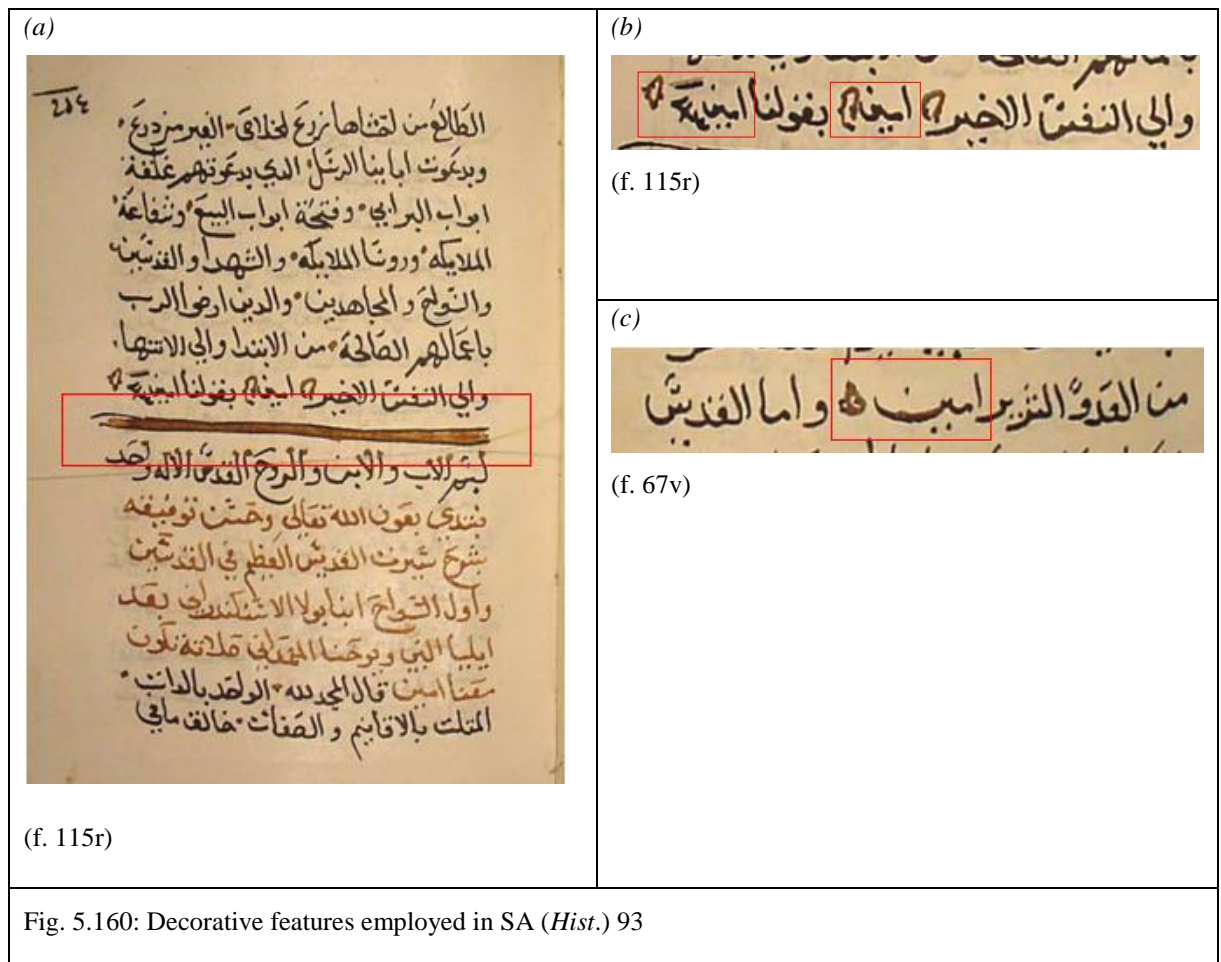 (a)
الطالع من لقتناها نزرع لخلاقي الغير مزدرع
وبدعوت ابابنا الرسل الدي بدعوتهم غلقة
ابواب البرابي وفتحة ابواب البيع وشفاعة
الملايكه وروسا الملايكه والشهدا والقديسين
والسواح والمجاهدين والدين ارضوا الرب
باعمالهم الصالحة من الابتدا والي الانتها
والي النفس الاخير امين بقولنا امين
بسم الاب والابن والروح القدس الاله واحد
نبتدي بعون الله تعالي وحسن توفيقه
بشرح سيرت القديس العظيم في القديسين
واول السواح انبا بولا الاسكندراني بعد
ايليا النبي ويوحنا المعمداني صلاته تكون
معنا امين قال المجد لله الواحد بالدات
المتلت بالاقانيم والصفات خالق مافي
(f. 115r)
(b)
والي النفس الاخير امين بقولنا امين
(f. 115r)
(c)
من العدو الشرير امين واما القديس
(f. 67v)
Fig. 5.160: Decorative features employed in SA (Hist.) 93